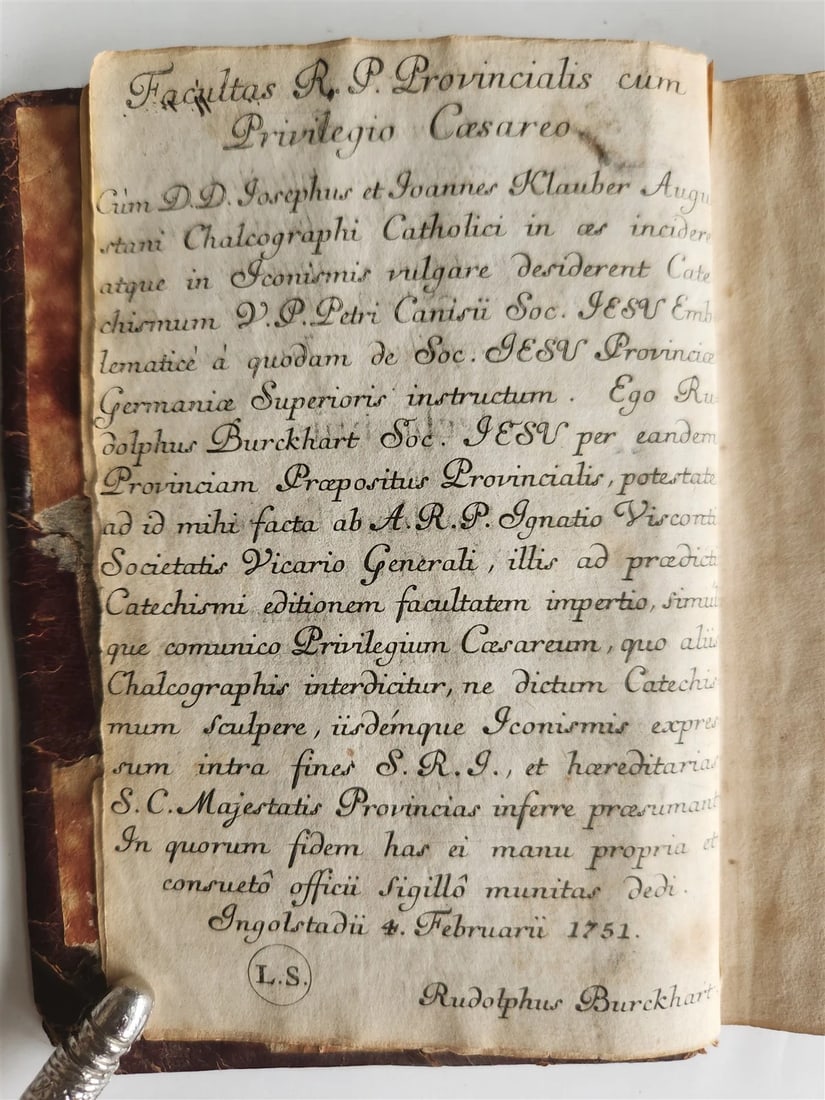 Facultas R. P. Provincialis cum
Privilegio Cæsareo.
Cùm D.D. Josephus et Joannes Klauber Augu
stani Chalcographi Catholici in æs incidere
atque in Iconismis vulgare desiderent Cate
chismum V.P. Petri Canisii Soc. IESU Emb
lematicè à quodam de Soc. IESU Provinciæ
Germaniæ Superioris instructum. Ego Ru
dolphus Burckhart Soc. IESU per eandem
Provinciam Præpositus Provincialis, potestate
ad id mihi facta ab A.R.P. Ignatio Visconti
Societatis Vicario Generali, illis ad prædicti
Catechismi editionem facultatem impertio, simul
que comunico Privilegium Cæsareum, quo aliis
Chalcographis interdicitur, ne dictum Catechis
mum sculpere, iisdémque Iconismis expres
sum intra fines S. R. I., et hæreditarias
S. C. Majestatis Provincias inferre præsumant
In quorum fidem has ei manu propria et
consuetô officii sigillô munitas dedi.
Ingolstadii 4. Februarii 1751.
L.S.
Rudolphus Burckhart.